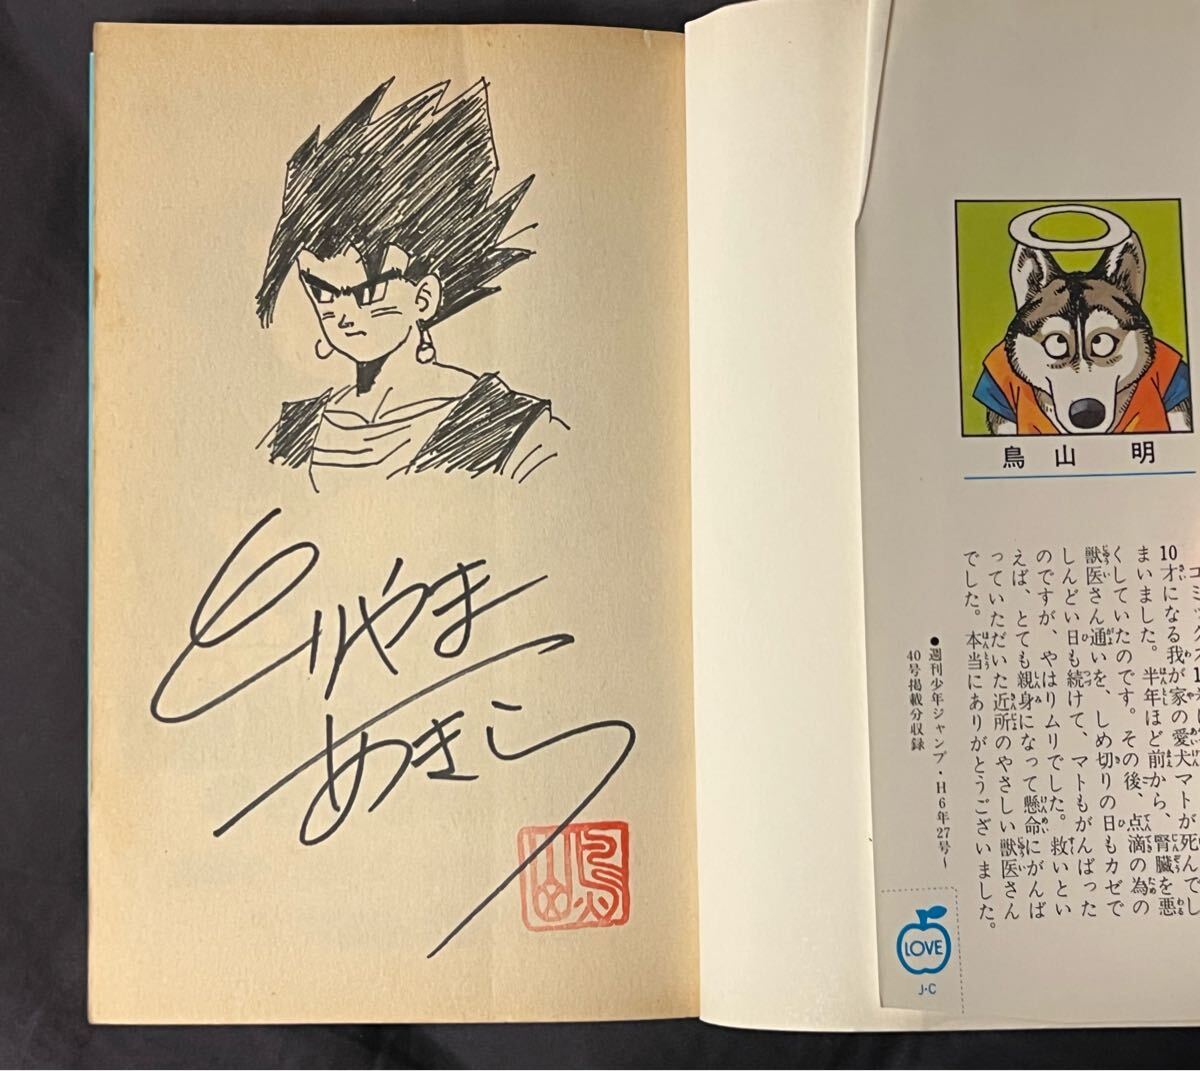 とりやま
あきら
鳥山 明
コミックス
10才になる我が家の愛犬マトが死んでし
まいました。半年ほど前から、腎臓を悪
くしていたのです。その後、点滴の為の
獣医さん通いを、しめ切りの日もカゼで
しんどい日も続けて、マトもがんばった
のですが、やはりムリでした。救いとい
えば、とても親身になって懸命にがんば
っていただいた近所のやさしい獣医さん
でした。本当にありがとうございました。
●週刊少年ジャンプ・H6年27号〜
40号掲載分収録
LOVE
J・C